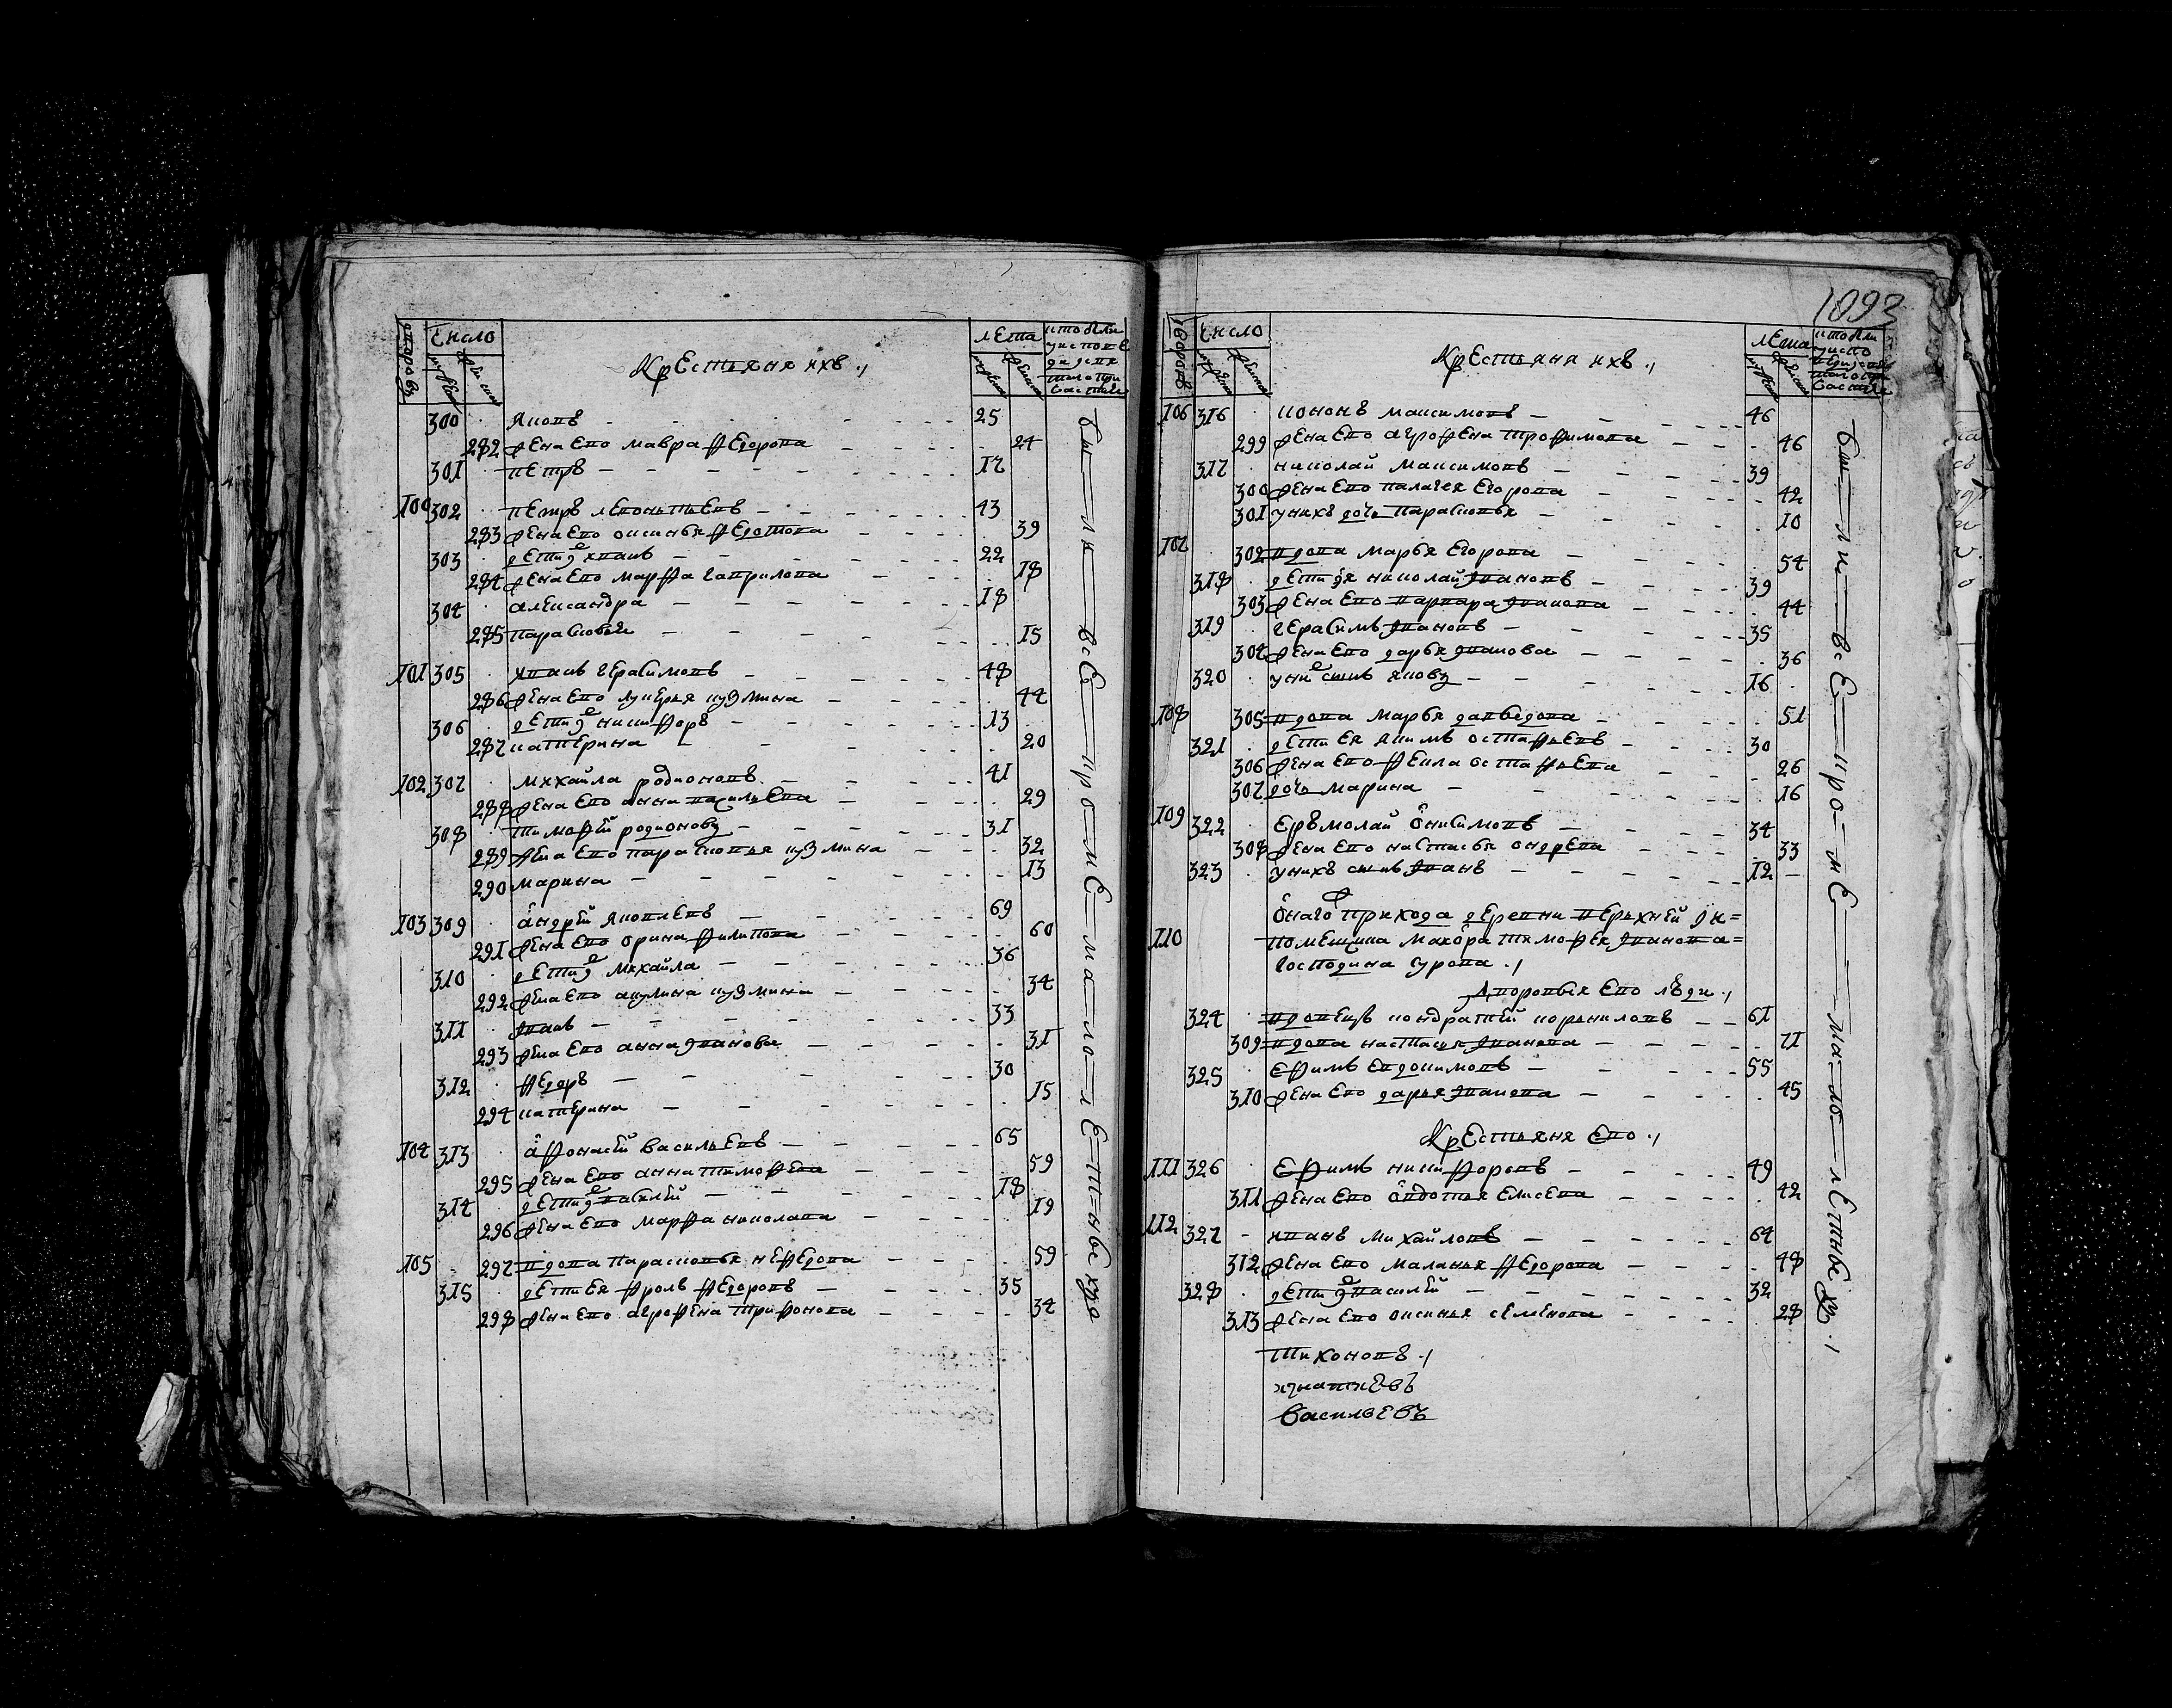 Число
лета
Крестьяня ихъ
300 Яковъ 25
282 жена ево мавра Федорова 24
301 петръ 17
100 302 петръ леонтьевъ 43
283 жена ево оксинья Федотова 39
303 дети е иванъ 22
284 жена ево марфа гаврилова 18
304 александра 18
285 парасковея 15
101 305 иванъ герасимовъ 48
286 жена ево лукерья кузмина 44
306 дети никифоръ 13
287 катерина 20
102 307 михайла родионовъ 41
288 жена ево анна васильева 29
308 тимофей родионовъ 31
289 жена ево парасковья кузмина 32
290 марина 13
103 309 андрей яковлевъ 69
291 жена ево орина филипова 60
310 дети михайла 36
292 жена ево акулина кузмина 34
311 иванъ 33
293 жена ево анна иванова 31
312 федоръ 30
294 катерина 15
104 313 афонасей васильевъ 65
295 жена ево анна тимофева 59
314 дети василей 18
296 жена ево марфа николава 19
105 297 вдова парасковья неФедова 59
315 дети ея фролъ Федоровъ 35
298 жена ево агрофена трифонова 34
были всѣ кроме малолетныхъ
1093
Число
лета
Крестьяня ихъ
106 316 кононъ максимовъ 46
299 жена ево агрофена трофимова 46
317 николай максимовъ 39
300 жена ево палагея егорова 42
301 у нихъ дочь парасковья 10
107 302 вдова марья егорова 54
318 дети ея николай ивановъ 39
303 жена ево варвара иванова 44
319 герасимъ ивановъ 35
304 жена ево дарья иванова 36
320 у ни сынъ яковъ 16
108 305 вдова марья давыдова 51
321 дети ея якимъ остафьевъ 30
306 жена ево фекла остафьева 26
307 дочь марина 16
109 322 ермолай онисимовъ 34
308 жена ево настасья андрева 33
323 у нихъ сынъ иванъ 12
онаго прихода деревни верхней
110 помещика маіора тимофея иванова
господина
Дворовыя ево люди
324 вдовецъ кондратей корниловъ 61
309 вдова настасья иванова 71
325 ефимъ евдокимовъ 55
310 жена ево дарья иванова 45
Крестьяня ево
111 326 ефимъ никифоровъ 49
311 жена ево овдотья елисева 42
112 327 иванъ михайловъ 64
312 жена ево маланья Федорова 48
328 дети василей 32
313 жена ево оксинья семенова 28
тихоновъ
игнатьевъ
васильевъ
были всѣ кроме малолетныхъ